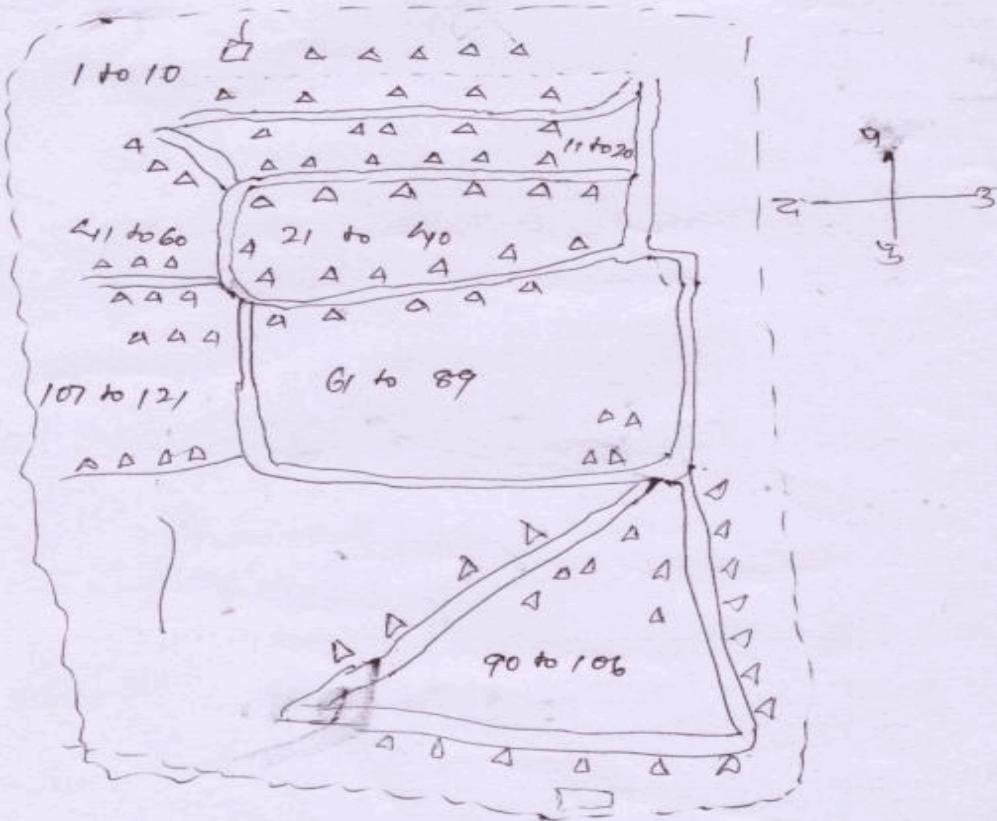 1 to 10
11 to 20
41 to 60
21 to 40
61 to 89
107 to 121
90 to 106